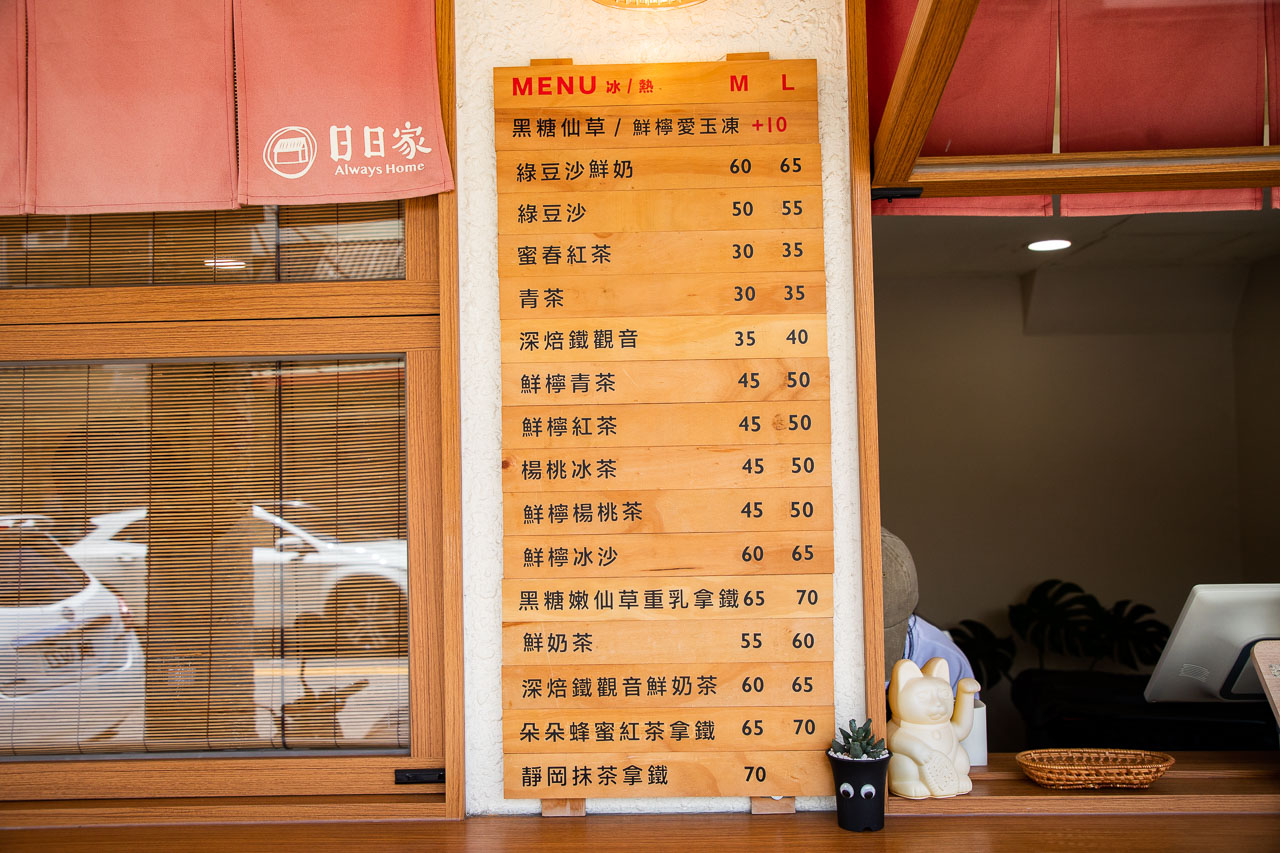 日日家
Always Home
MENU 冰/熱 M L
黑糖仙草/鮮檸愛玉凍 +10
綠豆沙鮮奶 60 65
綠豆沙 50 55
蜜春紅茶 30 35
青茶 30 35
深焙鐵觀音 35 40
鮮檸青茶 45 50
鮮檸紅茶 45 50
楊桃冰茶 45 50
鮮檸楊桃茶 45 50
鮮檸冰沙 60 65
黑糖嫩仙草重乳拿鐵 65 70
鮮奶茶 55 60
深焙鐵觀音鮮奶茶 60 65
朵朵蜂蜜紅茶拿鐵 65 70
靜岡抹茶拿鐵 70